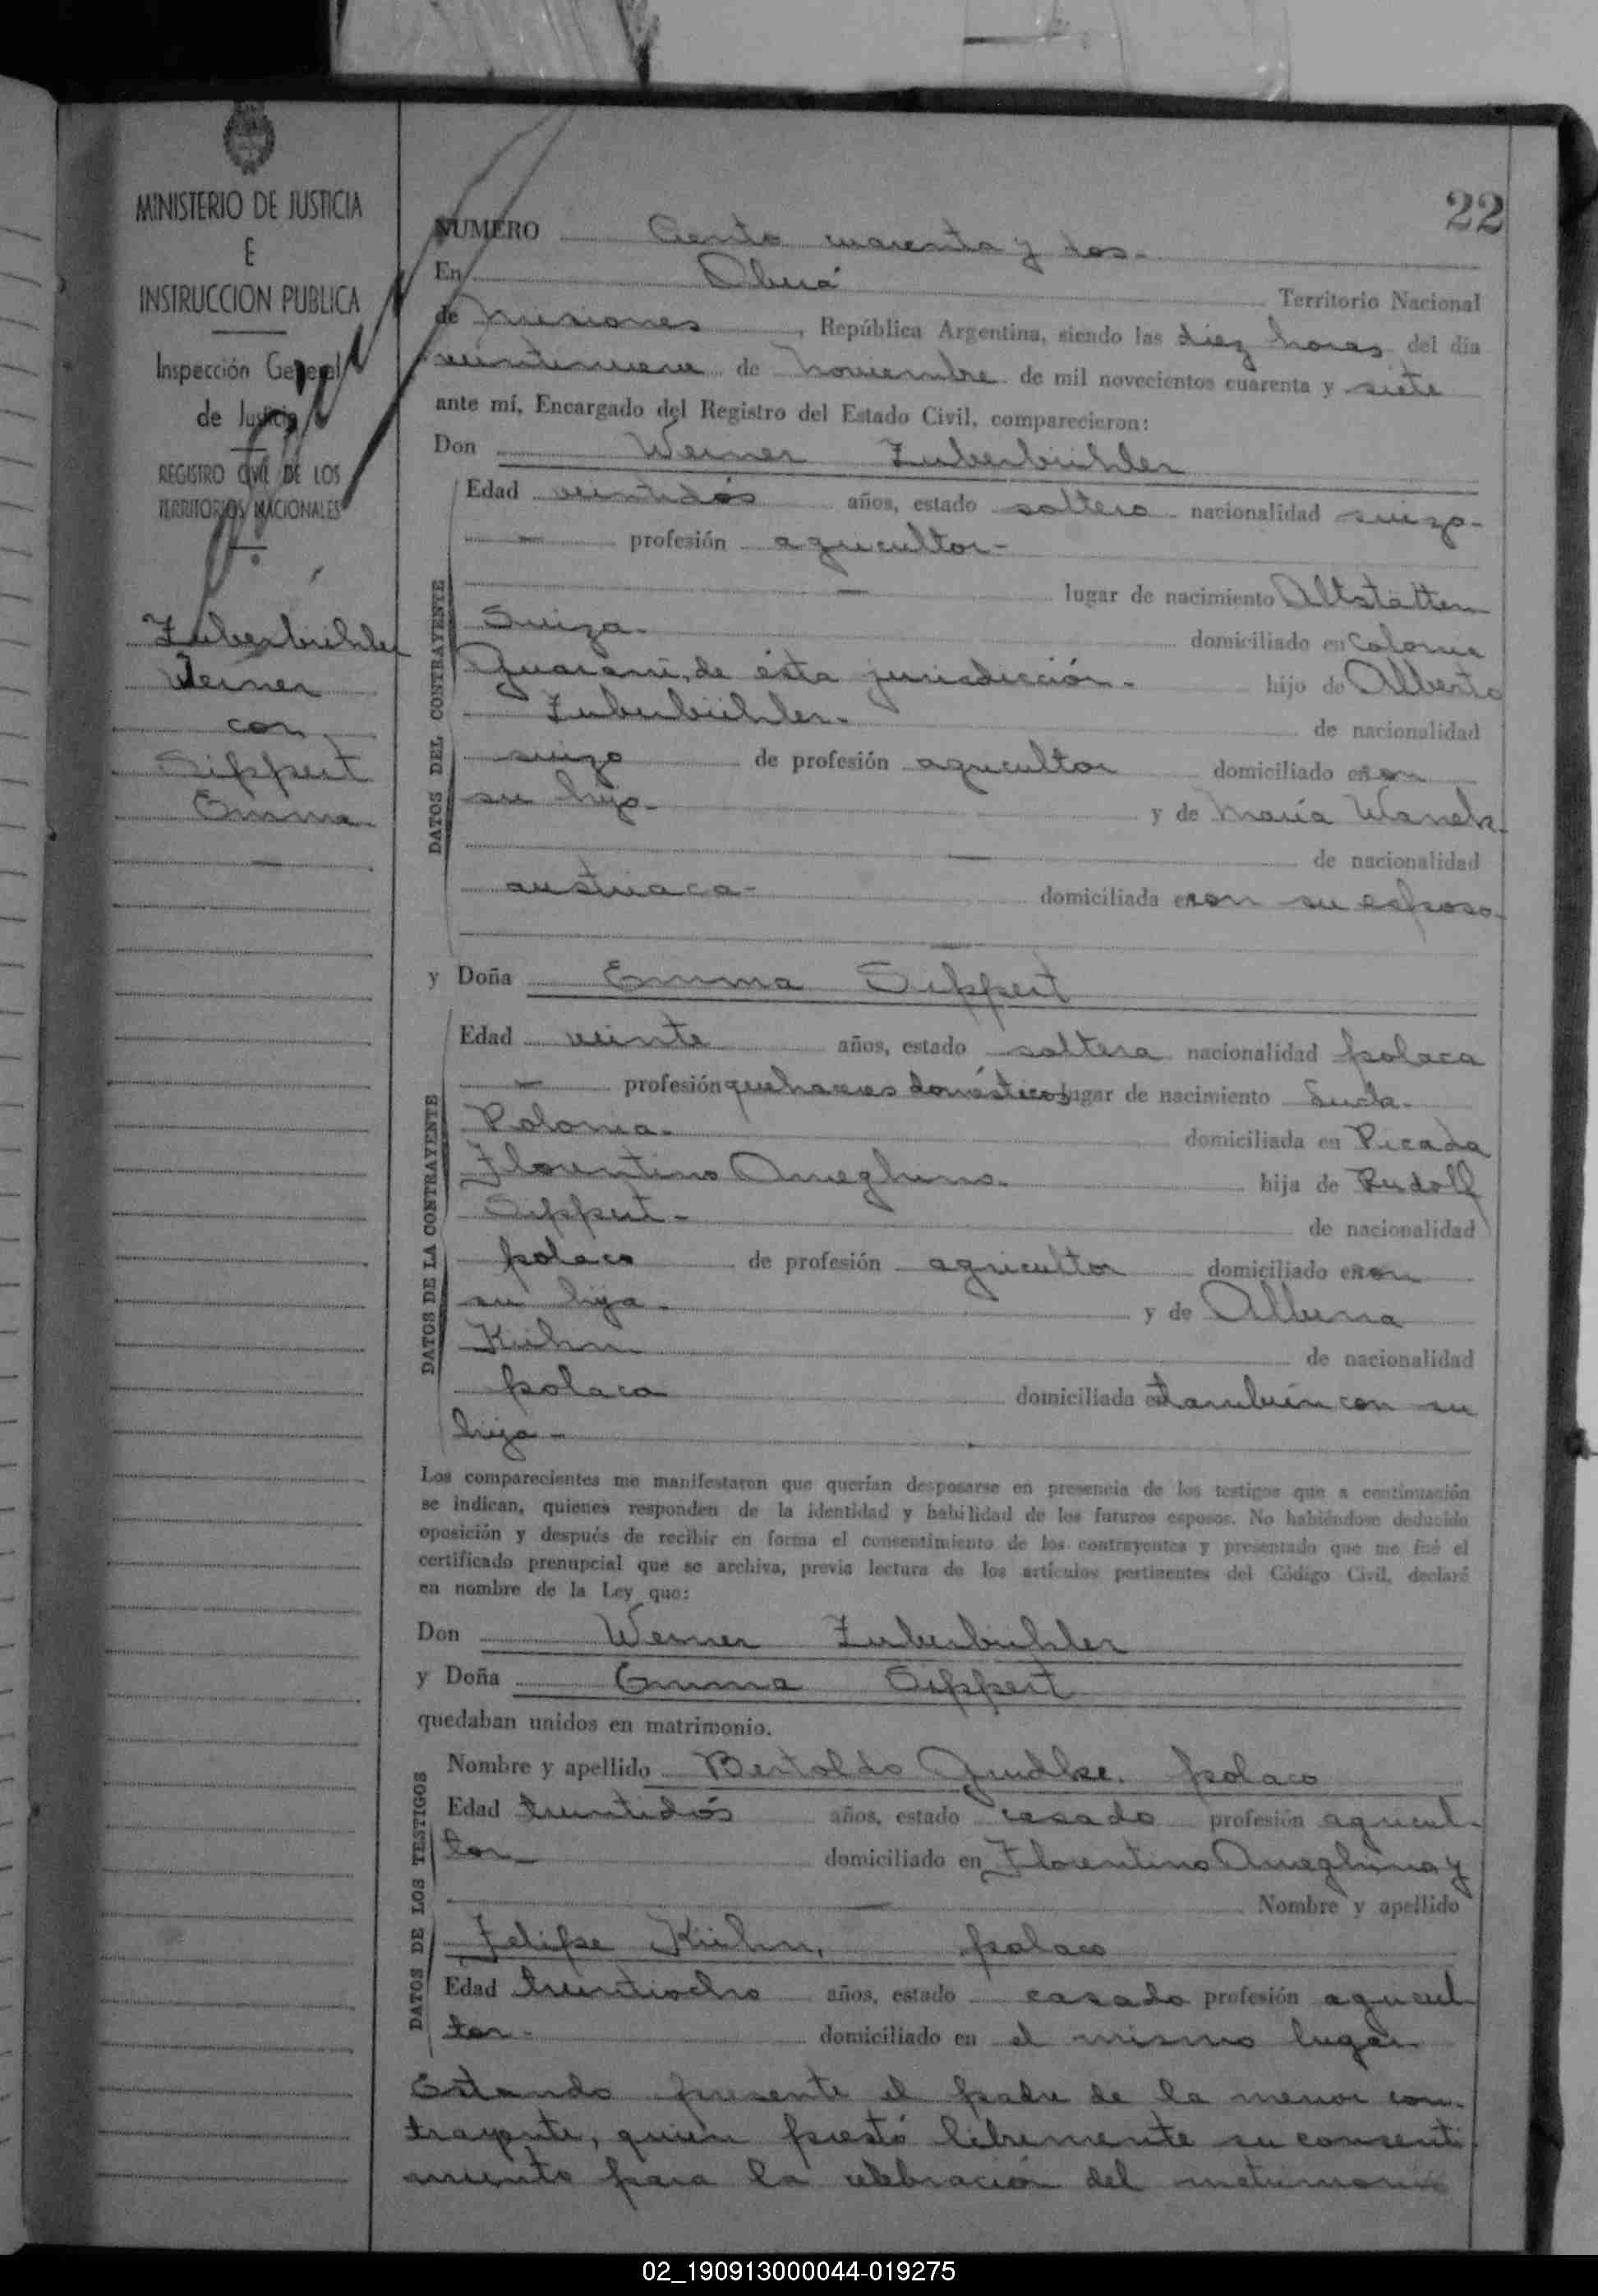 MINISTERIO DE JUSTICIA
E
INSTRUCCION PUBLICA
Inspección General
de Justicia
REGISTRO CIVIL DE LOS
TERRITORIOS NACIONALES
Zuberbühler
Werner
con
Sippert
Emma
22
NUMERO Ciento cuarenta y dos.
En Oberá Territorio Nacional
de Misiones, República Argentina, siendo las diez horas del día
veintinueve de Noviembre de mil novecientos cuarenta y siete
ante mí, Encargado del Registro del Estado Civil, comparecieron:
Don Werner Zuberbühler
DATOS DEL CONTRAYENTE
Edad veintidós años, estado soltero nacionalidad suizo-
profesión agricultor-
lugar de nacimiento Altstätten
Suiza. domiciliado en Colonia
Guaraní, de ésta jurisdicción. hijo de Alberto
Zuberbühler. de nacionalidad
suizo de profesión agricultor domiciliado en con
su hijo. y de María Wanek.
de nacionalidad
austriaca- domiciliada en con su esposo.
y Doña Emma Sippert
DATOS DE LA CONTRAYENTE
Edad veinte años, estado soltera nacionalidad polaca
profesión quehaceres domésticos lugar de nacimiento
Polonia. domiciliada en Picada
Florentino Ameghino. hija de Rudolf
Sippert- de nacionalidad
polaco de profesión agricultor domiciliado en con
su hija. y de Albina
Kühn de nacionalidad
polaca domiciliada en también con su
hija-
Los comparecientes me manifestaron que querían desposarse en presencia de los testigos que a continuación
se indican, quienes responden de la identidad y habilidad de los futuros esposos. No habiéndose deducido
oposición y después de recibir en forma el consentimiento de los contrayentes y presentado que me fué el
certificado prenupcial que se archiva, previa lectura de los artículos pertinentes del Código Civil, declaré
en nombre de la Ley que:
Don Werner Zuberbühler
y Doña Emma Sippert
quedaban unidos en matrimonio.
DATOS DE LOS TESTIGOS
Nombre y apellido Bertoldo polaco
Edad treintidós años, estado casado profesión agricul-
tor- domiciliado en Florentino Ameghino y
Nombre y apellido
Felipe Kühn, polaco
Edad treintiocho años, estado casado profesión agricul
tor- domiciliado en el mismo lugar.
Estando presente el padre de la menor con-
trayente, quien prestó libremente su consenti
miento para la celebración del matrimonio
02_190913000044-019275